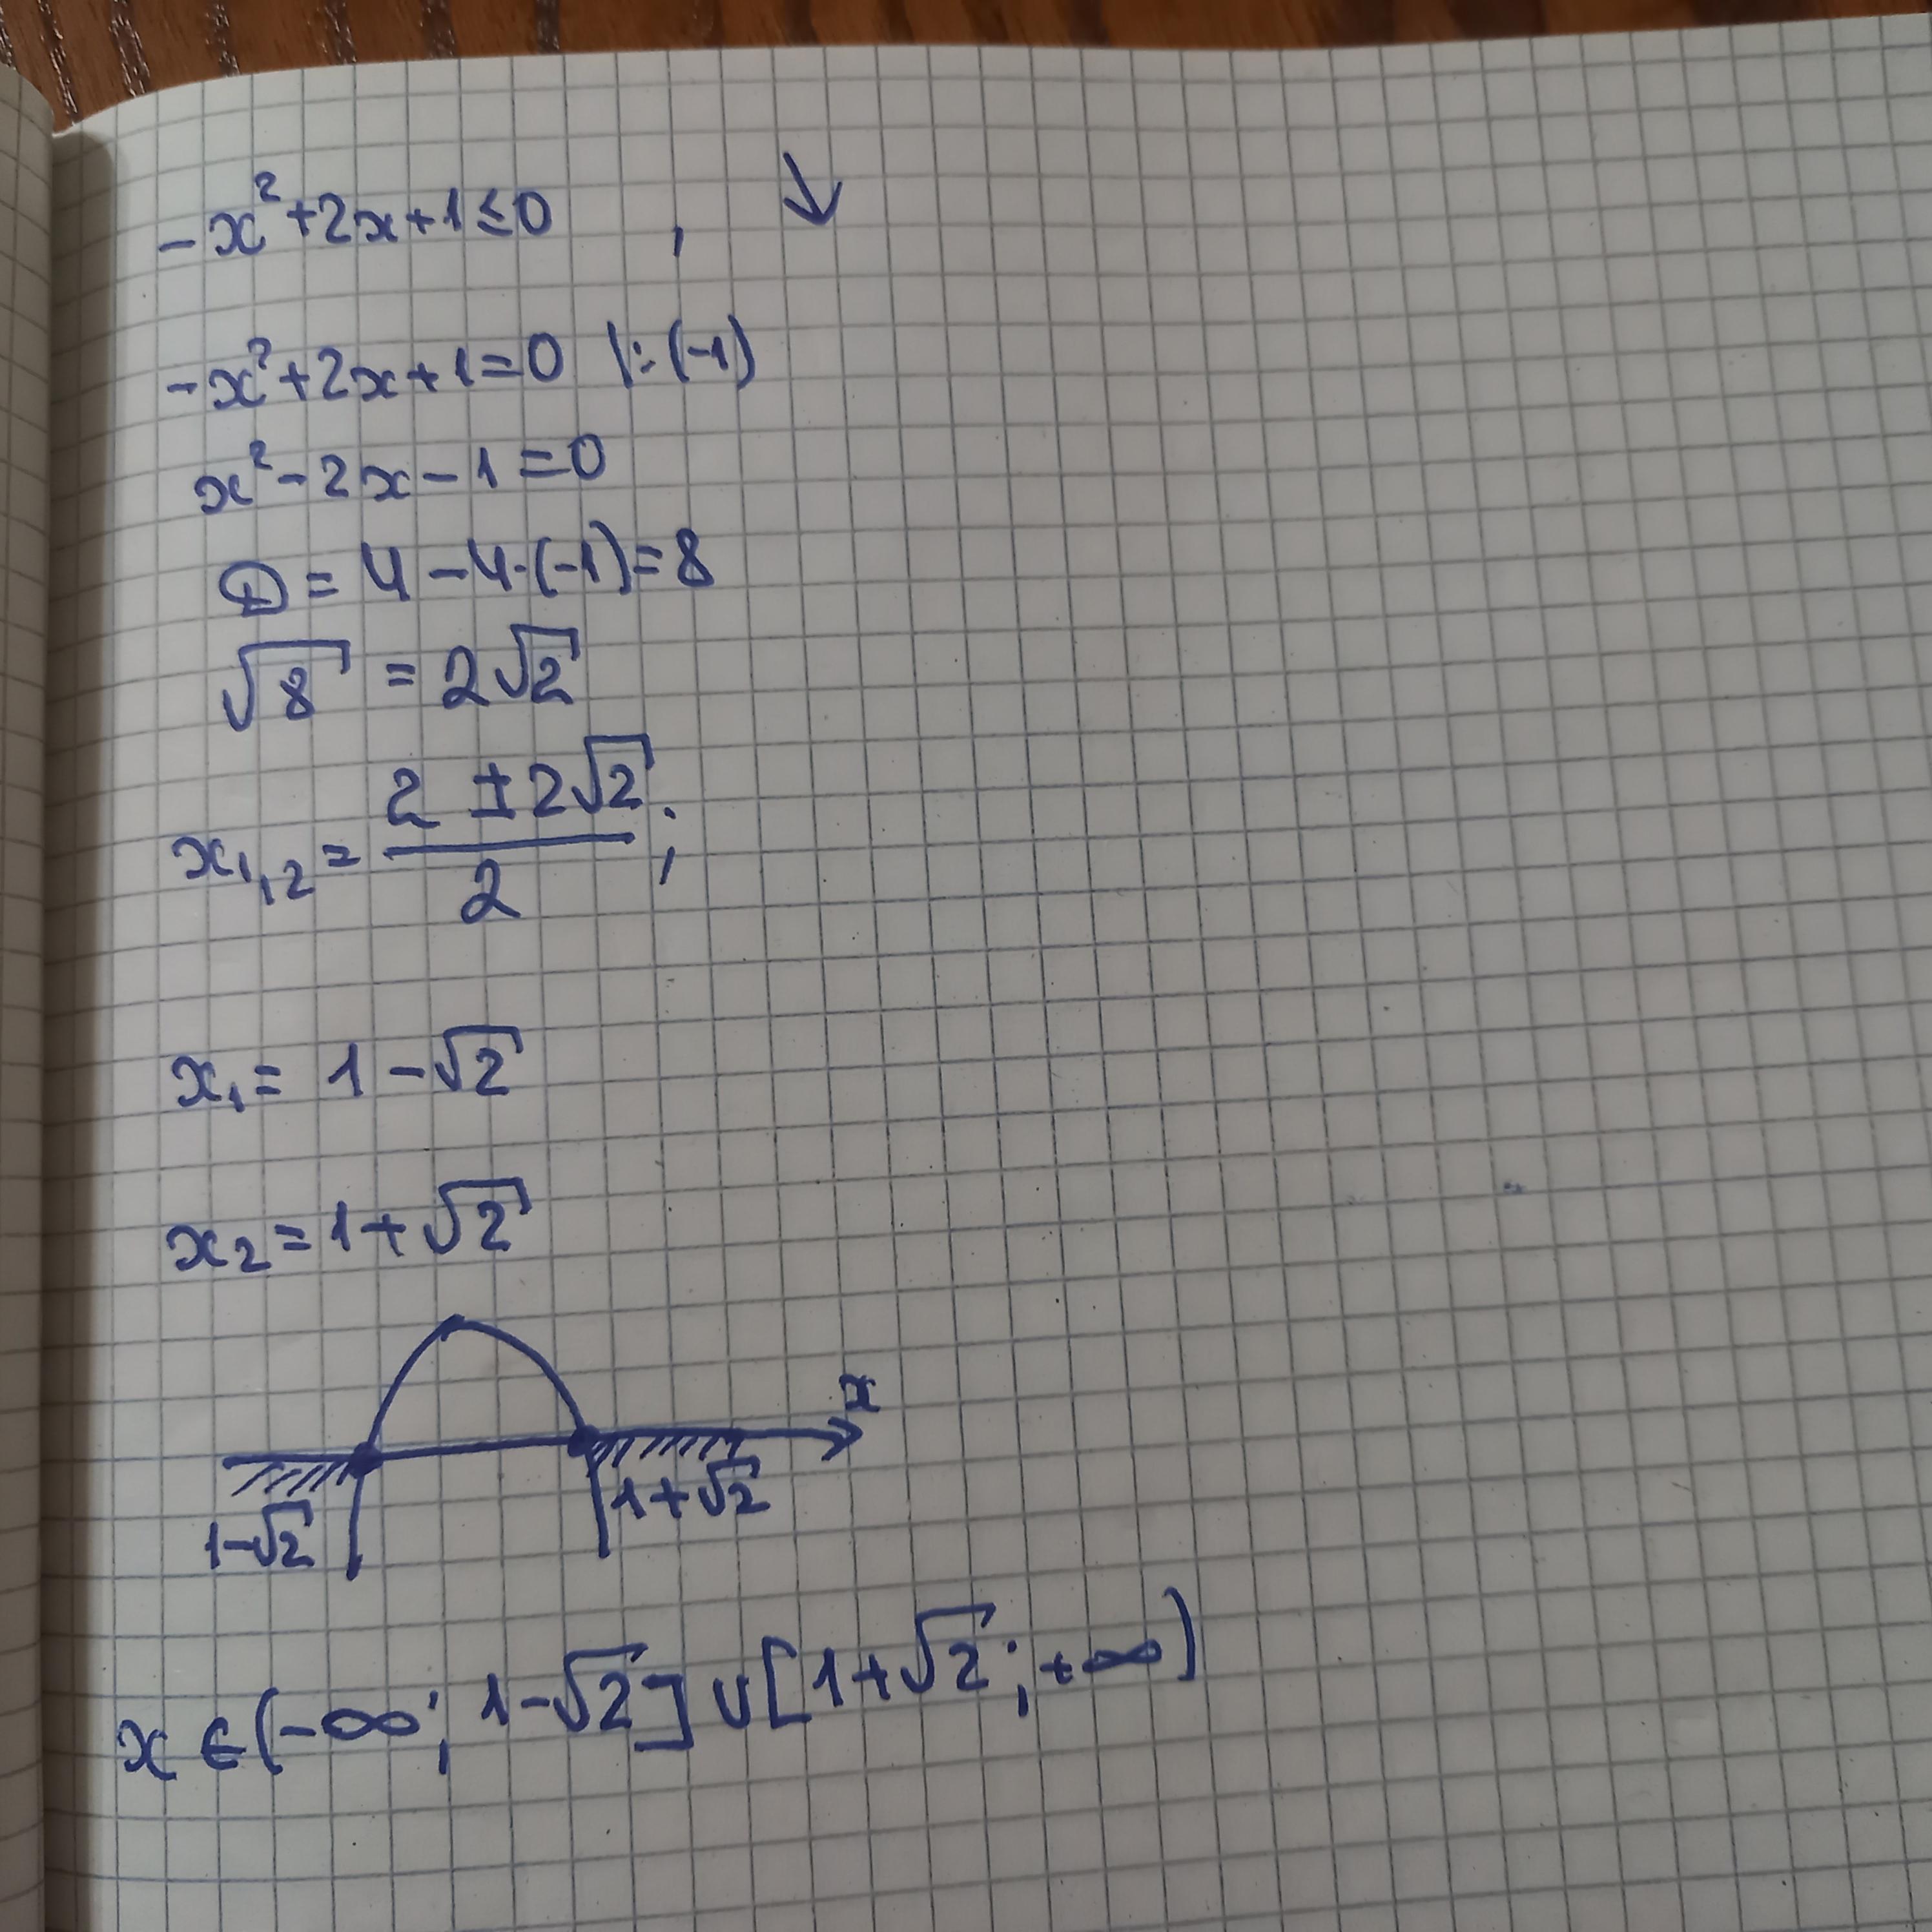 -x²+2x+1≤0 , ↓
-x²+2x+1=0 |:(-1)
x²-2x-1=0
D=4-4·(-1)=8
√8 = 2√2
x₁,₂= (2 ± 2√2)/2 ;
x₁= 1-√2
x₂=1+√2
x
1-√2 1+√2
x∈(-∞; 1-√2]∪[1+√2;+∞)